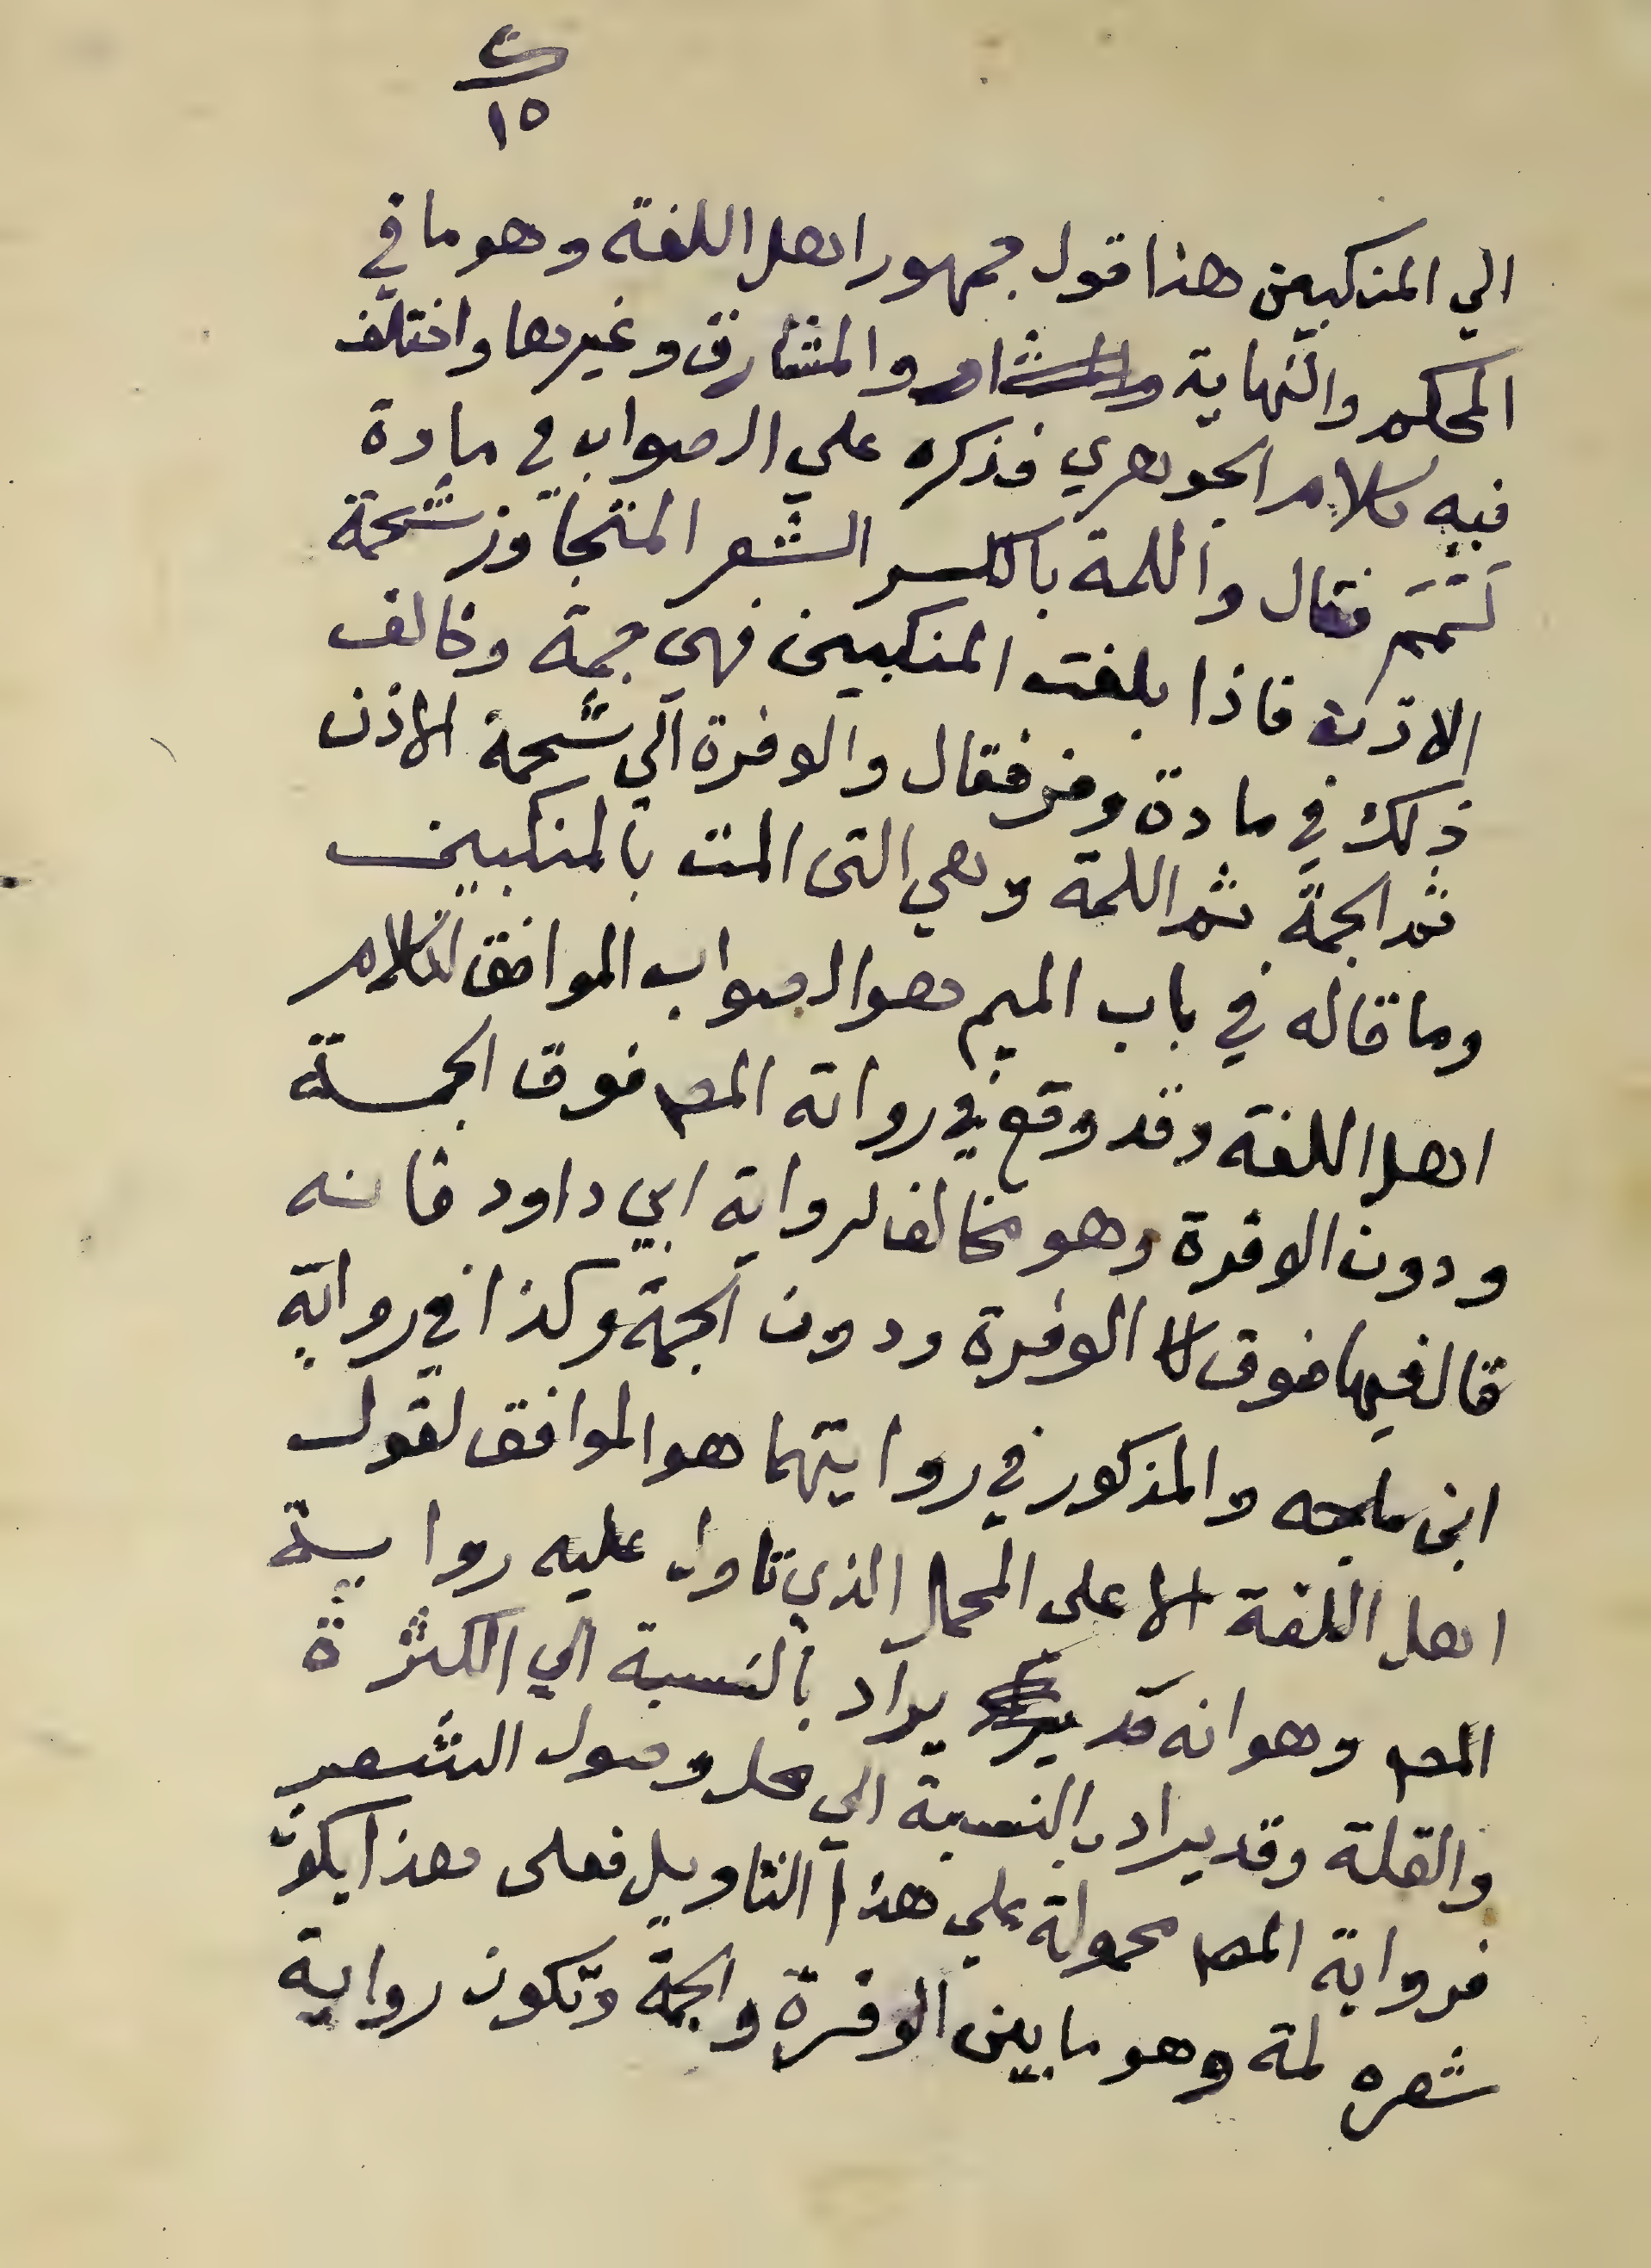 ت
١٥
الي المنكبين هذا قول جمهور اهل اللغة وهو ما في
المحكم والنهاية والمشارق وغيرها واختلف
فيه كلام الجوهري فذكره علي الصواب في مادة
لمم فقال واللمة بالكسر الشعر المتجاوز شحمة
الاذن فاذا بلغت المنكبين فهي جمة وخالف
ذلك في مادة وفر فقال والوفرة الي شحمة الاذن
ثم الجمة ثم اللمة وهي التى المت بالمنكبين
وما قاله في باب الميم هو الصواب الموافق لكلام
اهل اللغة وقد وقع في رواية المص فوق الجمة
ودون الوفرة وهو مخالف لرواية ابي داود فانه
قال فيها فوق الوفرة ودون الجمة وكذا في رواية
ابن ماجه والمذكور في روايتهما هو الموافق لقول
اهل اللغة الا على المحمل الذي تاول عليه رواية
المص وهو انه قد يراد بالنسبة الي الكثرة
والقلة وقد يراد بالنسبة الي محل وصول الشعر
فرواية المص محمولة علي هذا التاويل فعلى هذا يكون
شعره لمة وهو ما بين الوفرة والجمة وتكون رواية